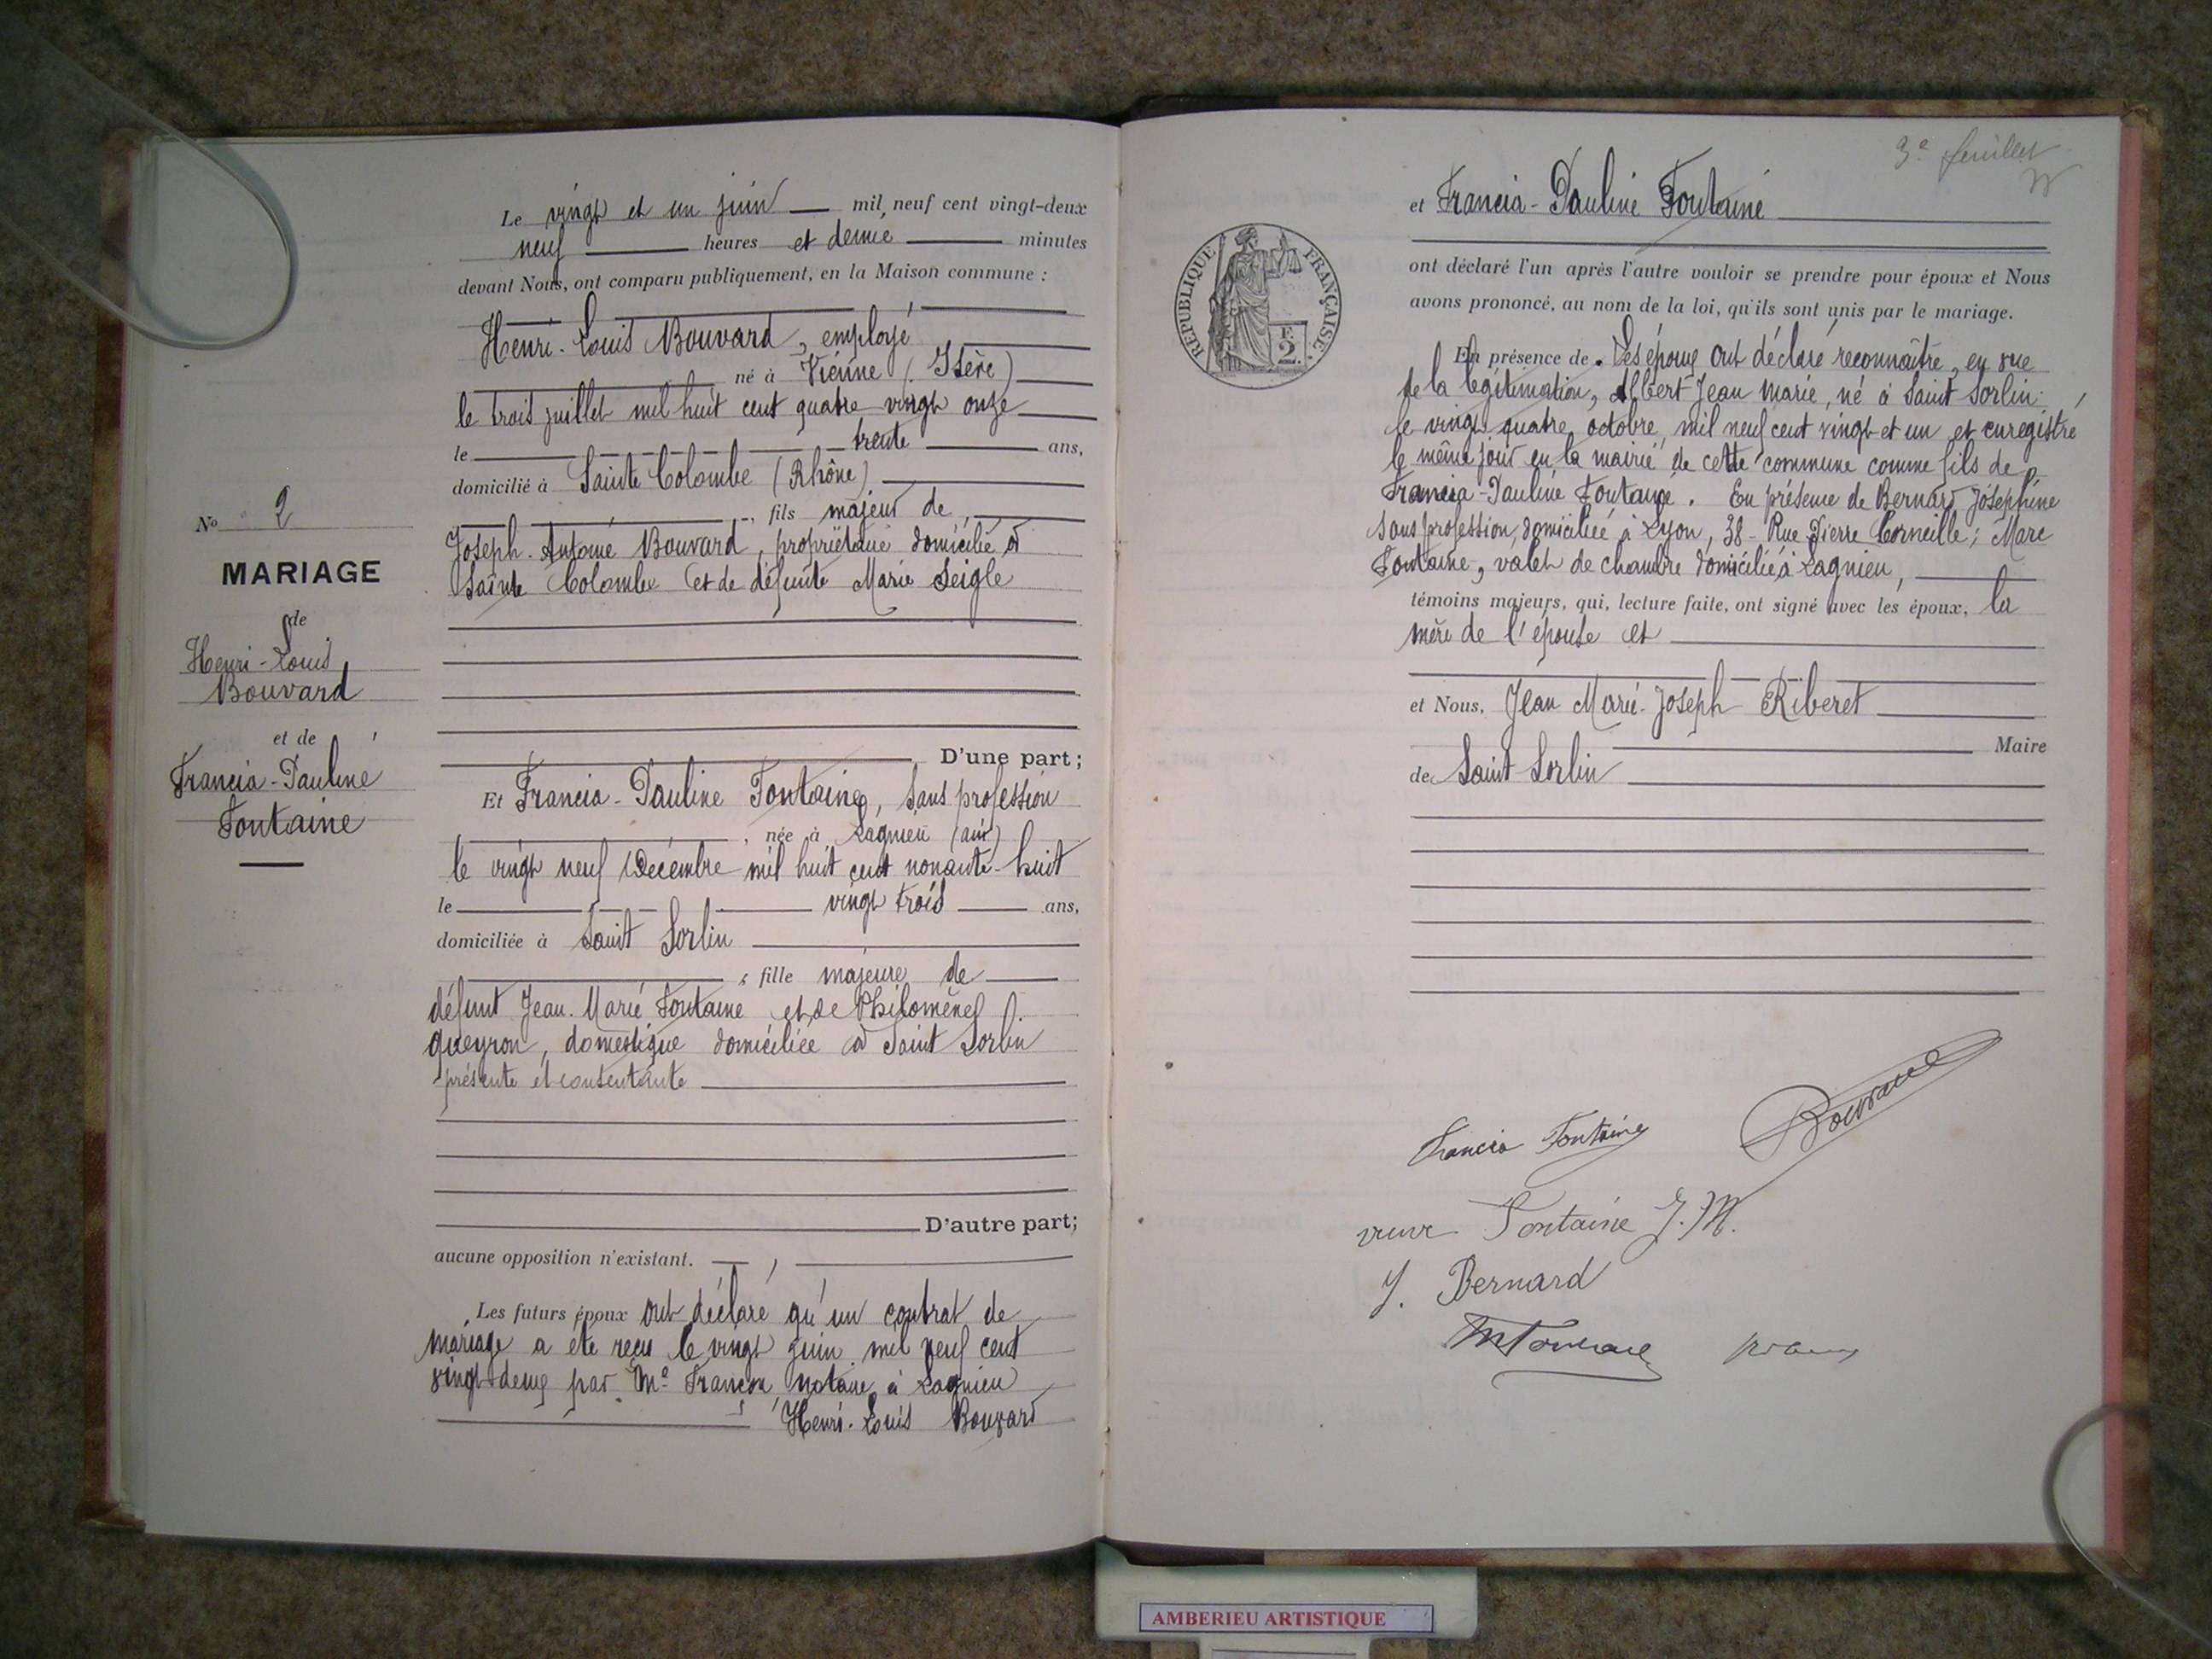 N° 2
MARIAGE
de
Henri-Louis
Bouvard
et de
Francia-Pauline
Fontaine
Le vingt et un juin mil neuf cent vingt-deux
neuf heures et demie minutes
devant Nous, ont comparu publiquement, en la Maison commune :
Henri-Louis Bouvard, employé
né à Vienne (Isère)
le trois juillet mil huit cent quatre vingt onze
le trente ans,
domicilié à Sainte Colombe (Rhône)
, fils majeur de
Joseph-Antoine Bouvard, propriétaire domicilié à
Sainte Colombe et de défunte Marie Seigle
D'une part ;
Et Francia-Pauline Fontaine, sans profession
, née à Lagnieu (ain)
le vingt neuf Décembre mil huit cent nonante-huit
le vingt trois ans,
domiciliée à Saint Sorlin
, fille majeure de
défunt Jean-Marie Fontaine et de Philomène
Queyron, domestique domiciliée à Saint Sorlin
présente et consentante
D'autre part ;
aucune opposition n'existant.
Les futurs époux ont déclaré qu'un contrat de
mariage a été reçu le vingt juin mil neuf cent
vingt-deux par Me Françon, notaire à Lagnieu
Henri-Louis Bouvard
3e feuillet
RÉPUBLIQUE FRANÇAISE
2
et Francia-Pauline Fontaine
ont déclaré l'un après l'autre vouloir se prendre pour époux et Nous
avons prononcé, au nom de la loi, qu'ils sont unis par le mariage.
En présence de. Les époux ont déclaré reconnaître, en vue
de la légitimation, Albert Jean Marie, né à Saint Sorlin
le vingt quatre octobre, mil neuf cent vingt et un et enregistré
le même jour en la mairie de cette commune comme fils de
Francia-Pauline Fontaine. En présence de Bernard Joséphine
sans profession, domiciliée à Lyon, 38 - Rue Pierre Corneille ; Marc
Fontaine, valet de chambre domicilié à Lagnieu,
témoins majeurs, qui, lecture faite, ont signé avec les époux, la
mère de l'épouse et
et Nous, Jean Marie-Joseph Riberet
Maire
de Saint Sorlin
Francia Fontaine Bouvard
veuve Fontaine J. M.
J. Bernard
M Fontaine
AMBERIEU ARTISTIQUE